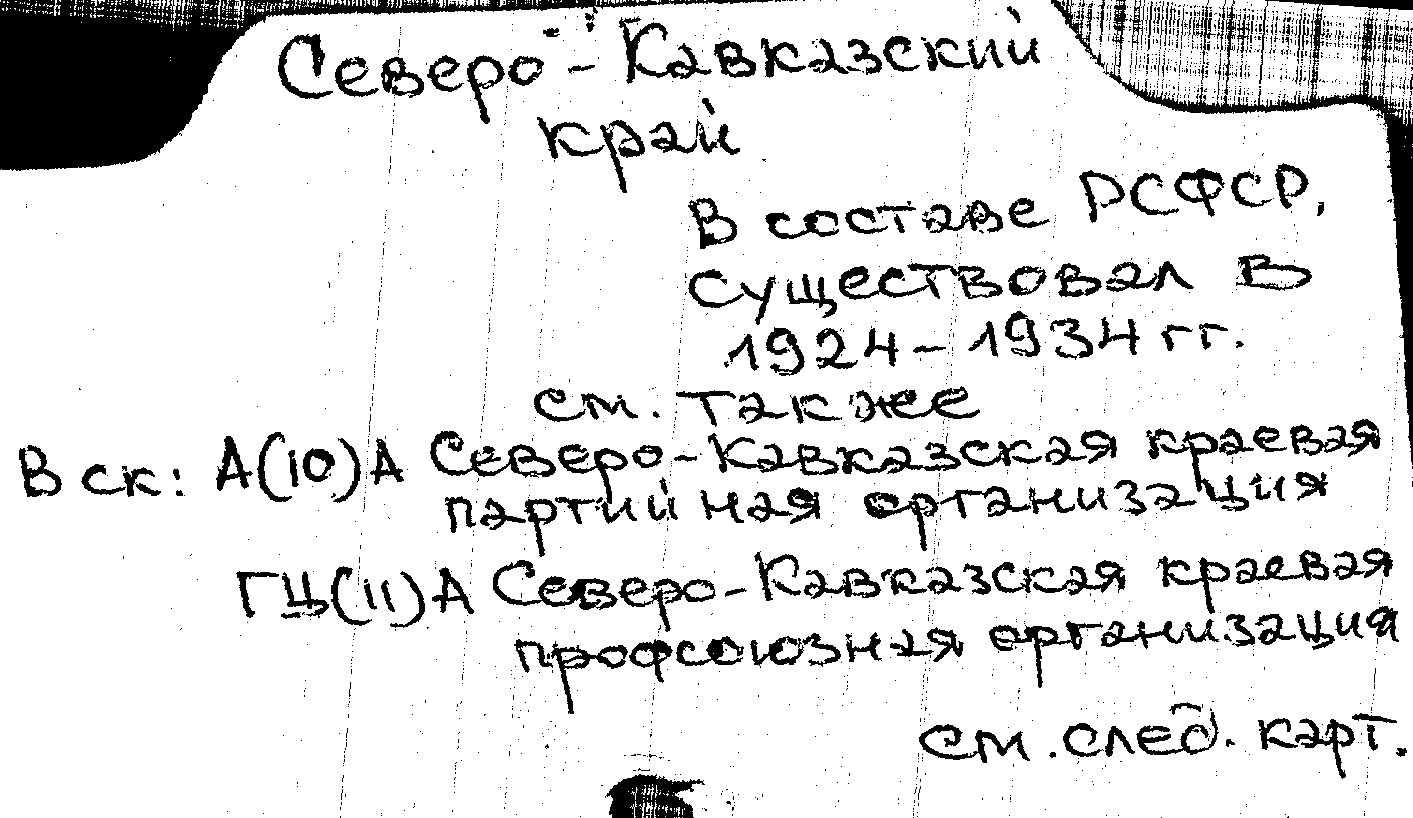 Северо-Кавказский
край
В составе РСФСР,
существовал в
1924-1934 гг.
см. также
В ск: А(10)А Северо-Кавказская краевая
партийная организация
ГЦ(11)А Северо-Кавказская краевая
профсоюзная организация
см. след. карт.